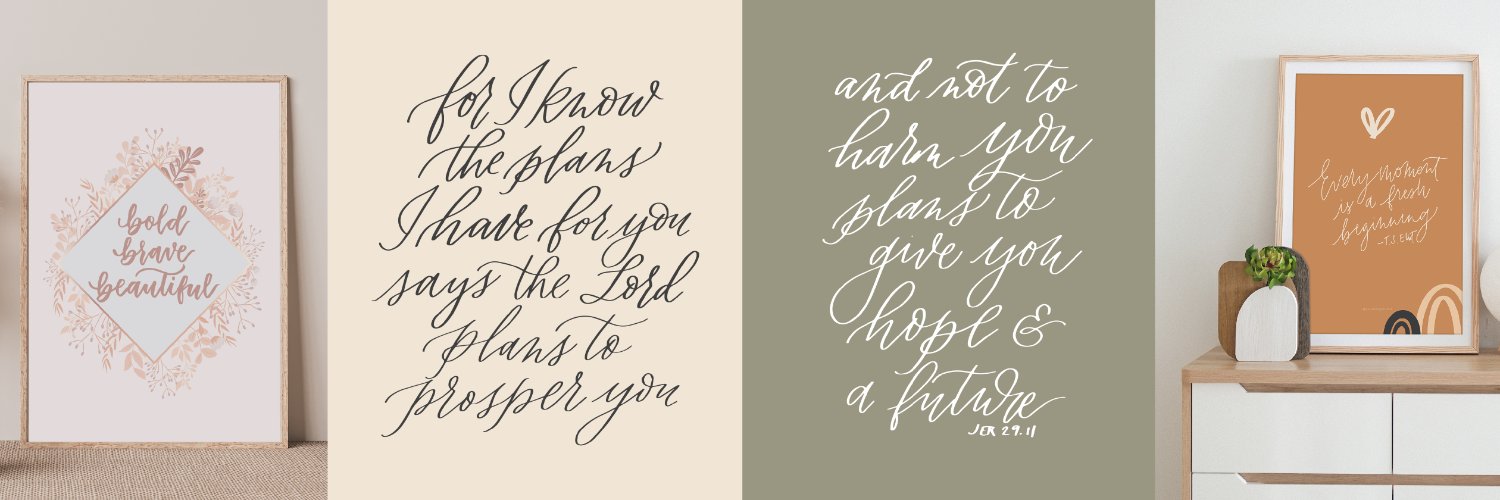 bold
brave
beautiful
for I know
the plans
I have for you
says the Lord
plans to
prosper you
and not to
harm you
plans to
give you
hope &
a future
JER 29:11
Every moment
is a fresh
beginning
-T.S. Eliot